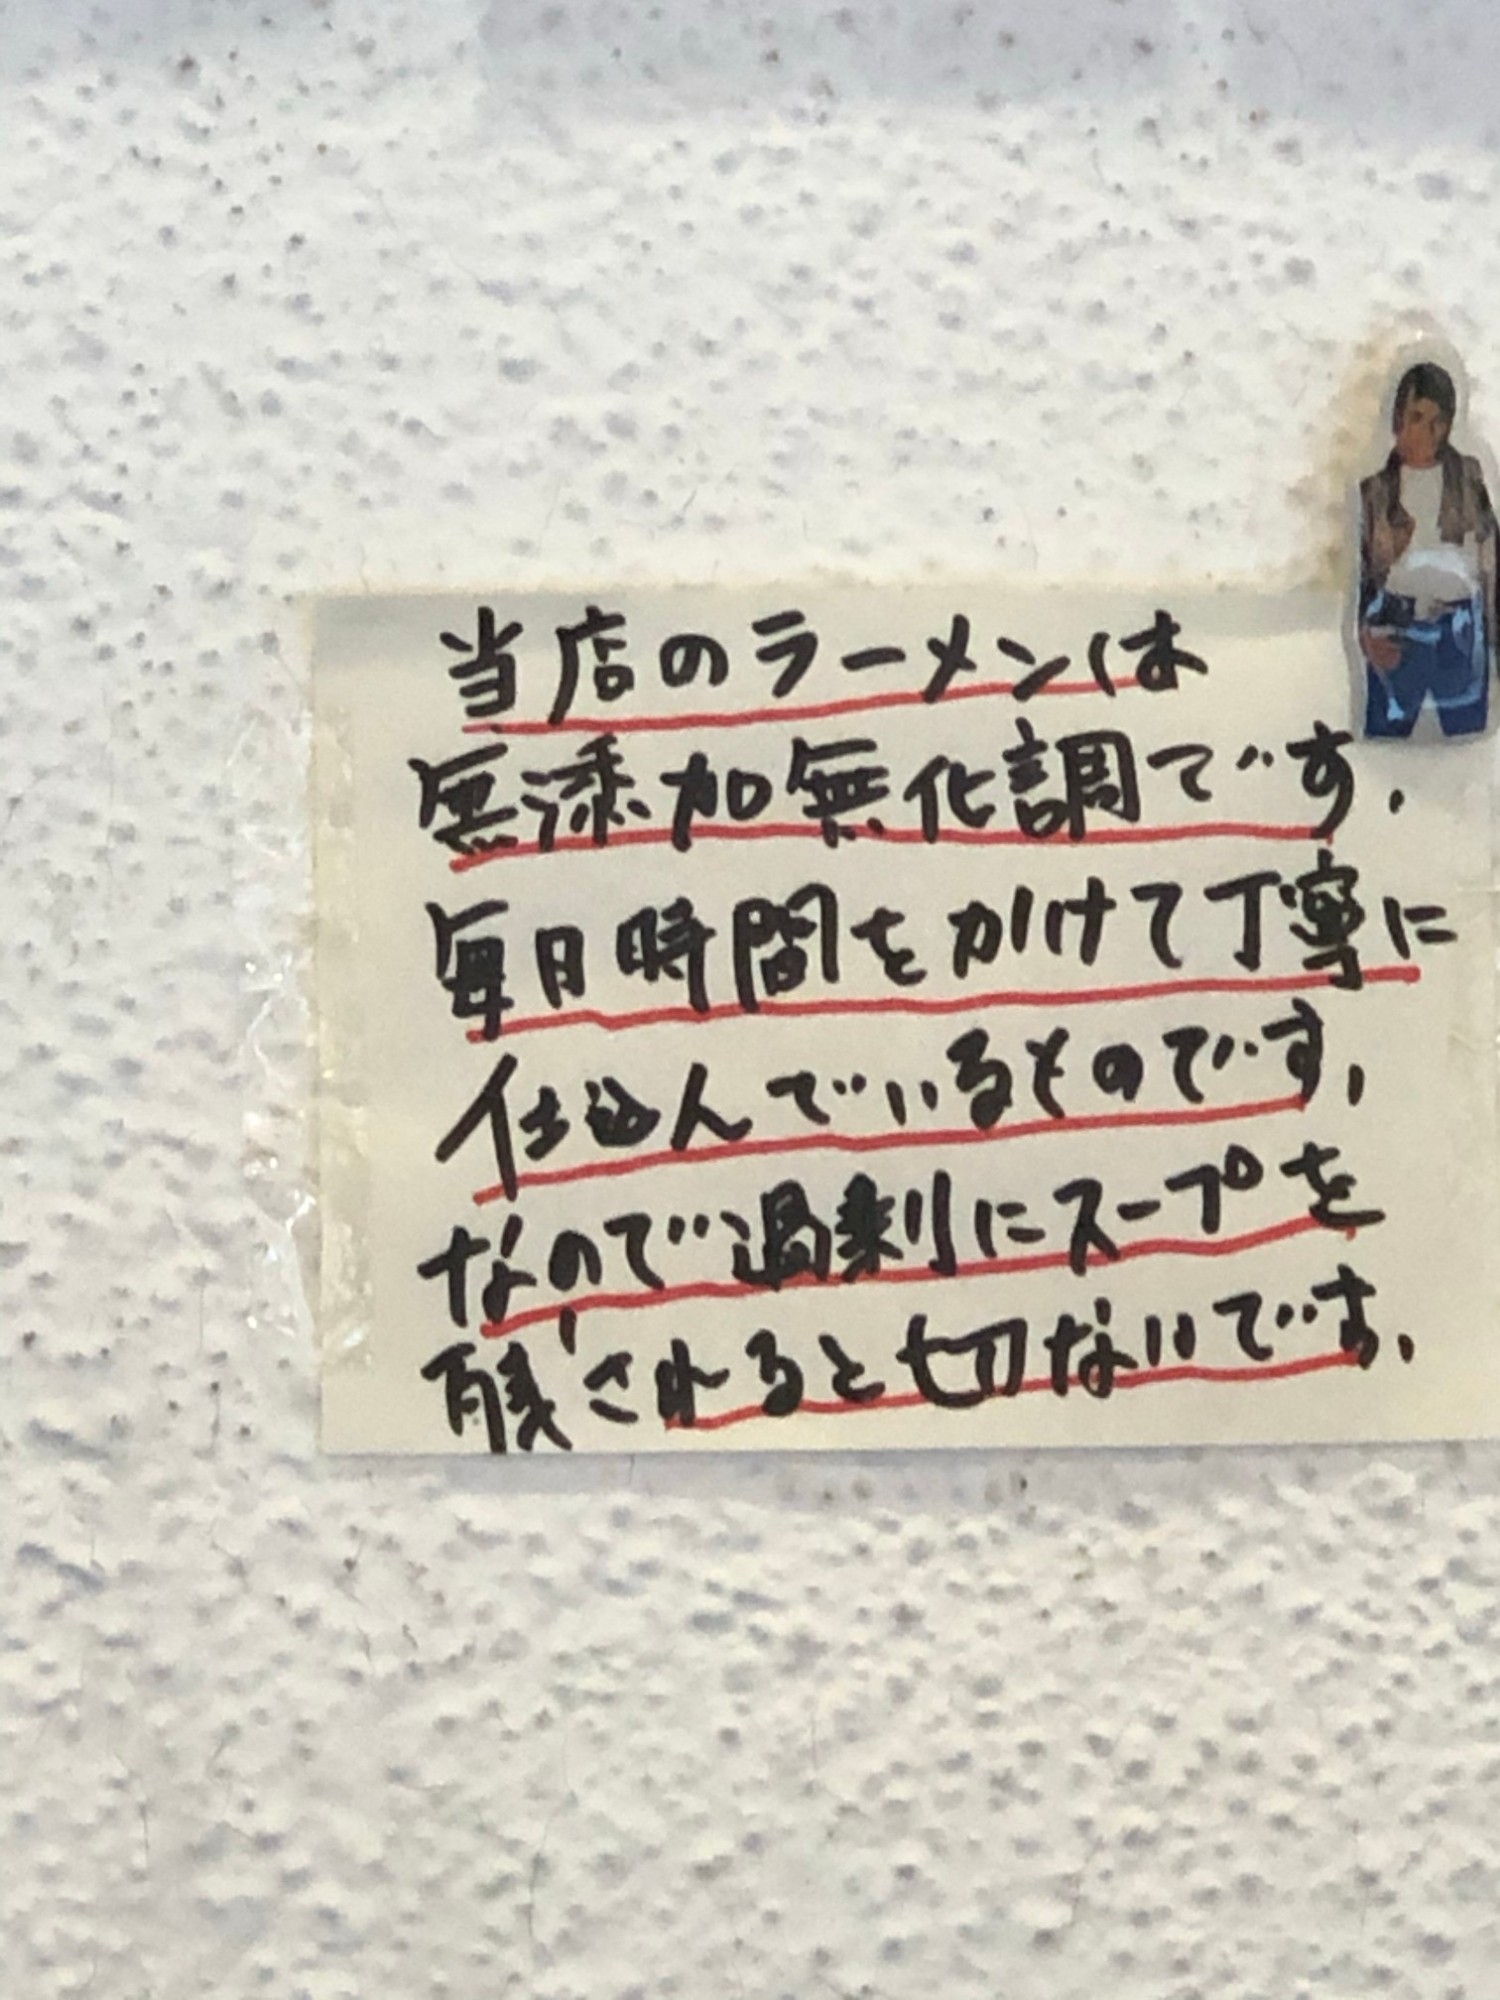 当店のラーメンは
無添加無化調です.
毎日時間をかけて丁寧に
仕込んでいるものです,
なので過剰にスープを
残されると切ないです.